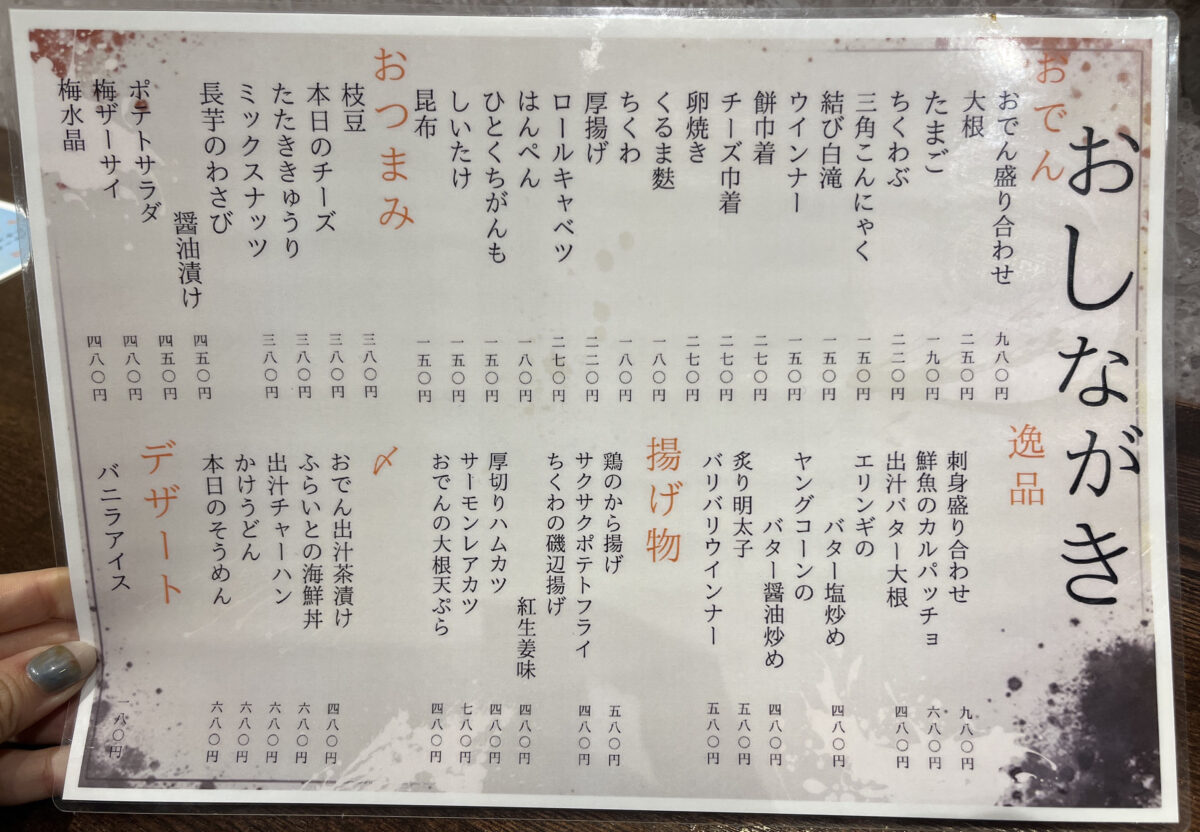 おしながき
おでん
おでん盛り合わせ 九八〇円
大根 二五〇円
たまご 一九〇円
ちくわぶ 二二〇円
三角こんにゃく 一五〇円
結び白滝 一五〇円
ウインナー 一五〇円
餅巾着 二七〇円
チーズ巾着 二七〇円
卵焼き 二七〇円
くるま麩 一八〇円
ちくわ 一八〇円
厚揚げ 二二〇円
ロールキャベツ 二七〇円
はんぺん 一八〇円
ひとくちがんも 一五〇円
しいたけ 一五〇円
昆布 一五〇円
おつまみ
枝豆 三八〇円
本日のチーズ 三八〇円
たたききゅうり 三八〇円
ミックスナッツ 三八〇円
長芋のわさび
醤油漬け 四五〇円
ポテトサラダ 四五〇円
梅ザーサイ 四八〇円
梅水晶 四八〇円
逸品
刺身盛り合わせ 九八〇円
鮮魚のカルパッチョ 六八〇円
出汁バター大根 四八〇円
エリンギの
バター塩炒め 四八〇円
ヤングコーンの
バター醤油炒め 四八〇円
炙り明太子 五八〇円
バリバリウインナー 五八〇円
揚げ物
鶏のから揚げ 五八〇円
サクサクポテトフライ 四八〇円
ちくわの磯辺揚げ
紅生姜味 四八〇円
厚切りハムカツ 四八〇円
サーモンレアカツ 七八〇円
おでんの大根天ぷら 四八〇円
〆
おでん出汁茶漬け 四八〇円
ふらいとの海鮮丼 六八〇円
出汁チャーハン 六八〇円
かけうどん 六八〇円
本日のそうめん 六八〇円
デザート
バニラアイス 一八〇円